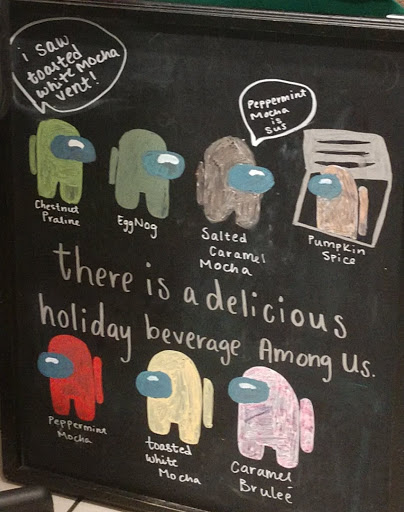 i saw
toasted
white Mocha
vent!
Peppermint
Mocha
is
sus
Chestnut
Praline
EggNog
Salted
Caramel
Mocha
Pumpkin
Spice
there is a delicious
holiday beverage Among Us.
Peppermint
Mocha
toasted
white
Mocha
Caramel
Brulee